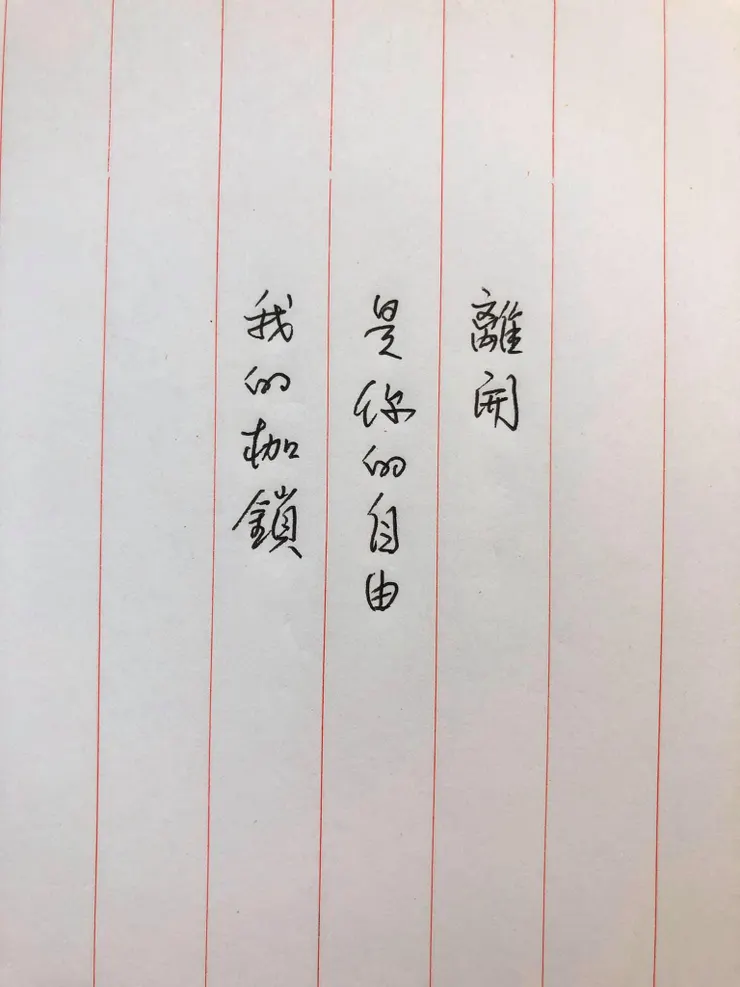 離開
是你的自由
我的枷鎖